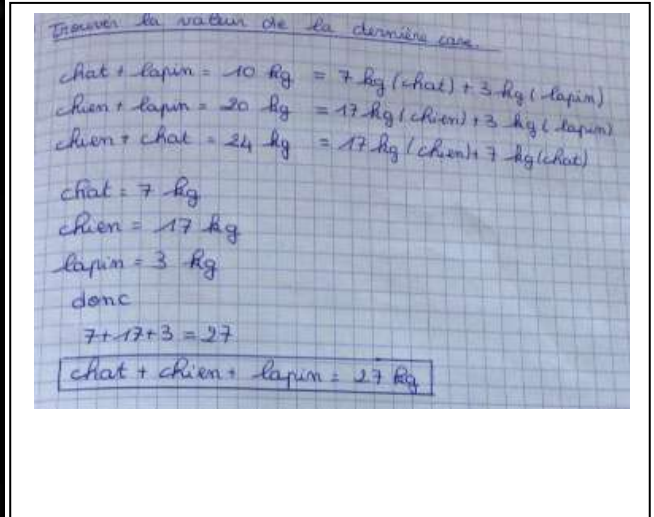 Trouver la valeur de la dernière case.
chat + lapin = 10 kg = 7 kg (chat) + 3 kg (lapin)
chien + lapin = 20 kg = 17 kg (chien) + 3 kg (lapin)
chien + chat = 24 kg = 17 kg (chien) + 7 kg (chat)
chat = 7 kg
chien = 17 kg
lapin = 3 kg
donc
7 + 17 + 3 = 27
chat + chien + lapin = 27 kg